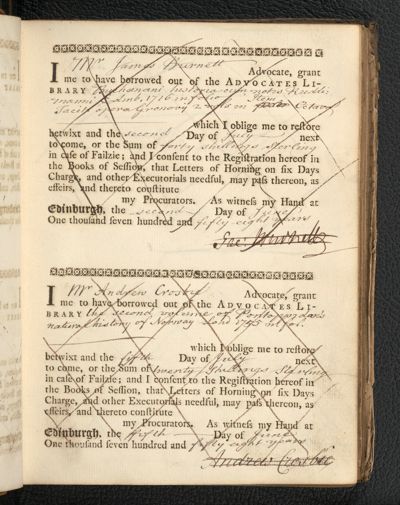 I Mr James Burnett Advocate, grant
me to have borrowed out of the ADVOCATES LI-
BRARY Buchanani historia cum notis Ruddi-
manni Edinb. 1716 in folio Item
Taciti opera Gronovij 2 vols in Octavo
which I oblige me to restore
betwixt and the second Day of July next
to come, or the Sum of forty shillings Sterling
in case of Failzie; and I consent to the Registration hereof in
the Books of Session, that Letters of Horning on six Days
Charge, and other Executorials needful, may pass thereon, as
effeirs, and thereto constitute
my Procurators. As witness my Hand at
Edinburgh, the second Day of June
One thousand seven hundred and fifty eight years
Jas: Burnett
I Mr Andrew Crosbie Advocate, grant
me to have borrowed out of the ADVOCATES LI-
BRARY the second volume of Pontoppidan's
natural history of Norway Lond 1755 in fol.
which I oblige me to restore
betwixt and the fifth Day of July next
to come, or the Sum of twenty Shillings Sterling
in case of Failzie; and I consent to the Registration hereof in
the Books of Session, that Letters of Horning on six Days
Charge, and other Executorials needful, may pass thereon, as
effeirs, and thereto constitute
my Procurators. As witness my Hand at
Edinburgh, the fifth Day of June
One thousand seven hundred and fifty eight years
Andrew Crosbie